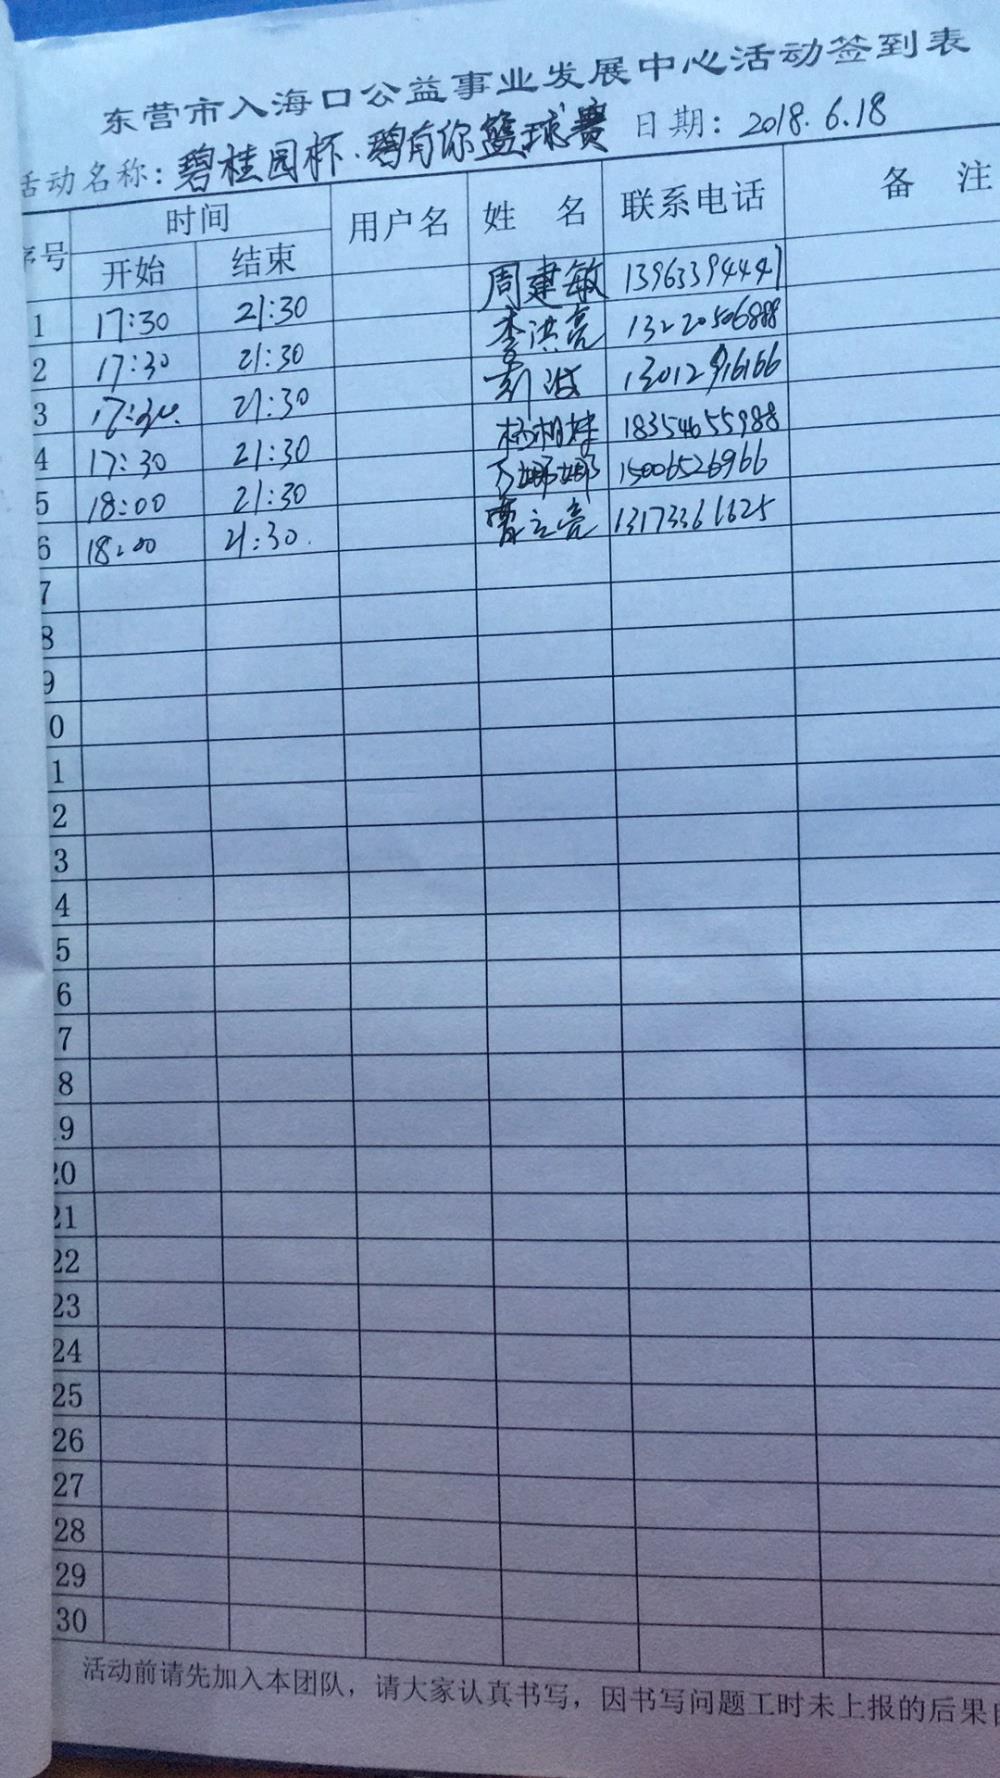 东营市入海口公益事业发展中心活动签到表
活动名称：碧桂园杯.碧有你篮球赛 日期：2018.6.18
序号 时间 用户名 姓 名 联系电话 备 注
开始 结束
1 17:30 21:30 周建敏 13963394447
2 17:30 21:30 李洪亮 13220506888
3 17:30 21:30 彭波
4 17:30 21:30 18354655988
5 18:00 21:30 娜娜 15006526966
6 18:00 21:30 曹立亮 13173361625
7
8
9
0
1
2
3
4
5
6
7
8
19
20
21
22
23
24
25
26
27
28
29
30
活动前请先加入本团队，请大家认真书写，因书写问题工时未上报的后果自